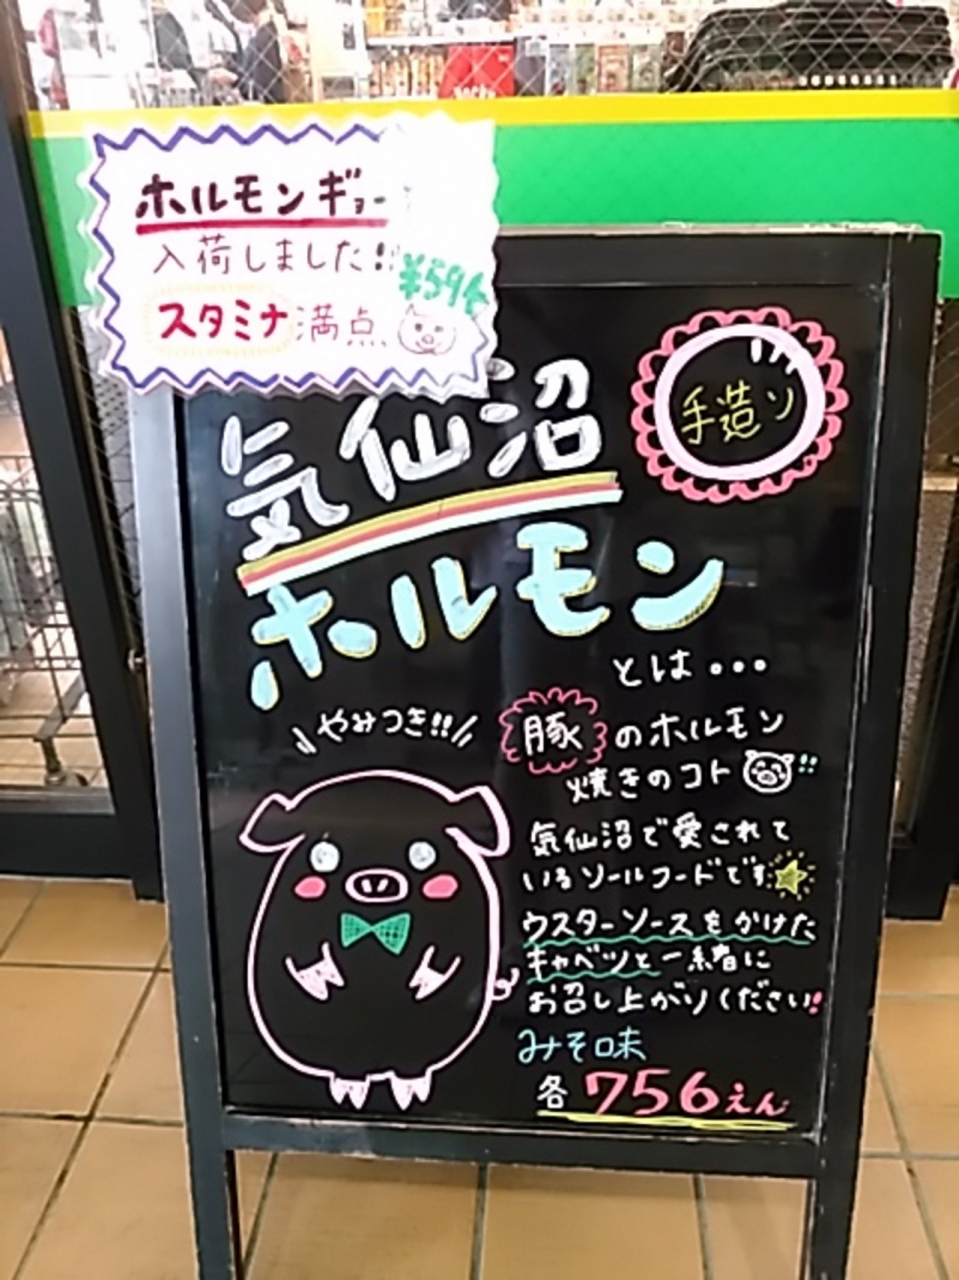 ホルモンギョー
入荷しました!!
¥594
スタミナ満点
気仙沼
手造り
ホルモン
とは・・・
やみつき!!
豚のホルモン
焼きのコト!!
気仙沼で愛されて
いるソールフードです
ウスターソースをかけた
キャベツと一緒に
お召し上がりください!
みそ味
各756えん